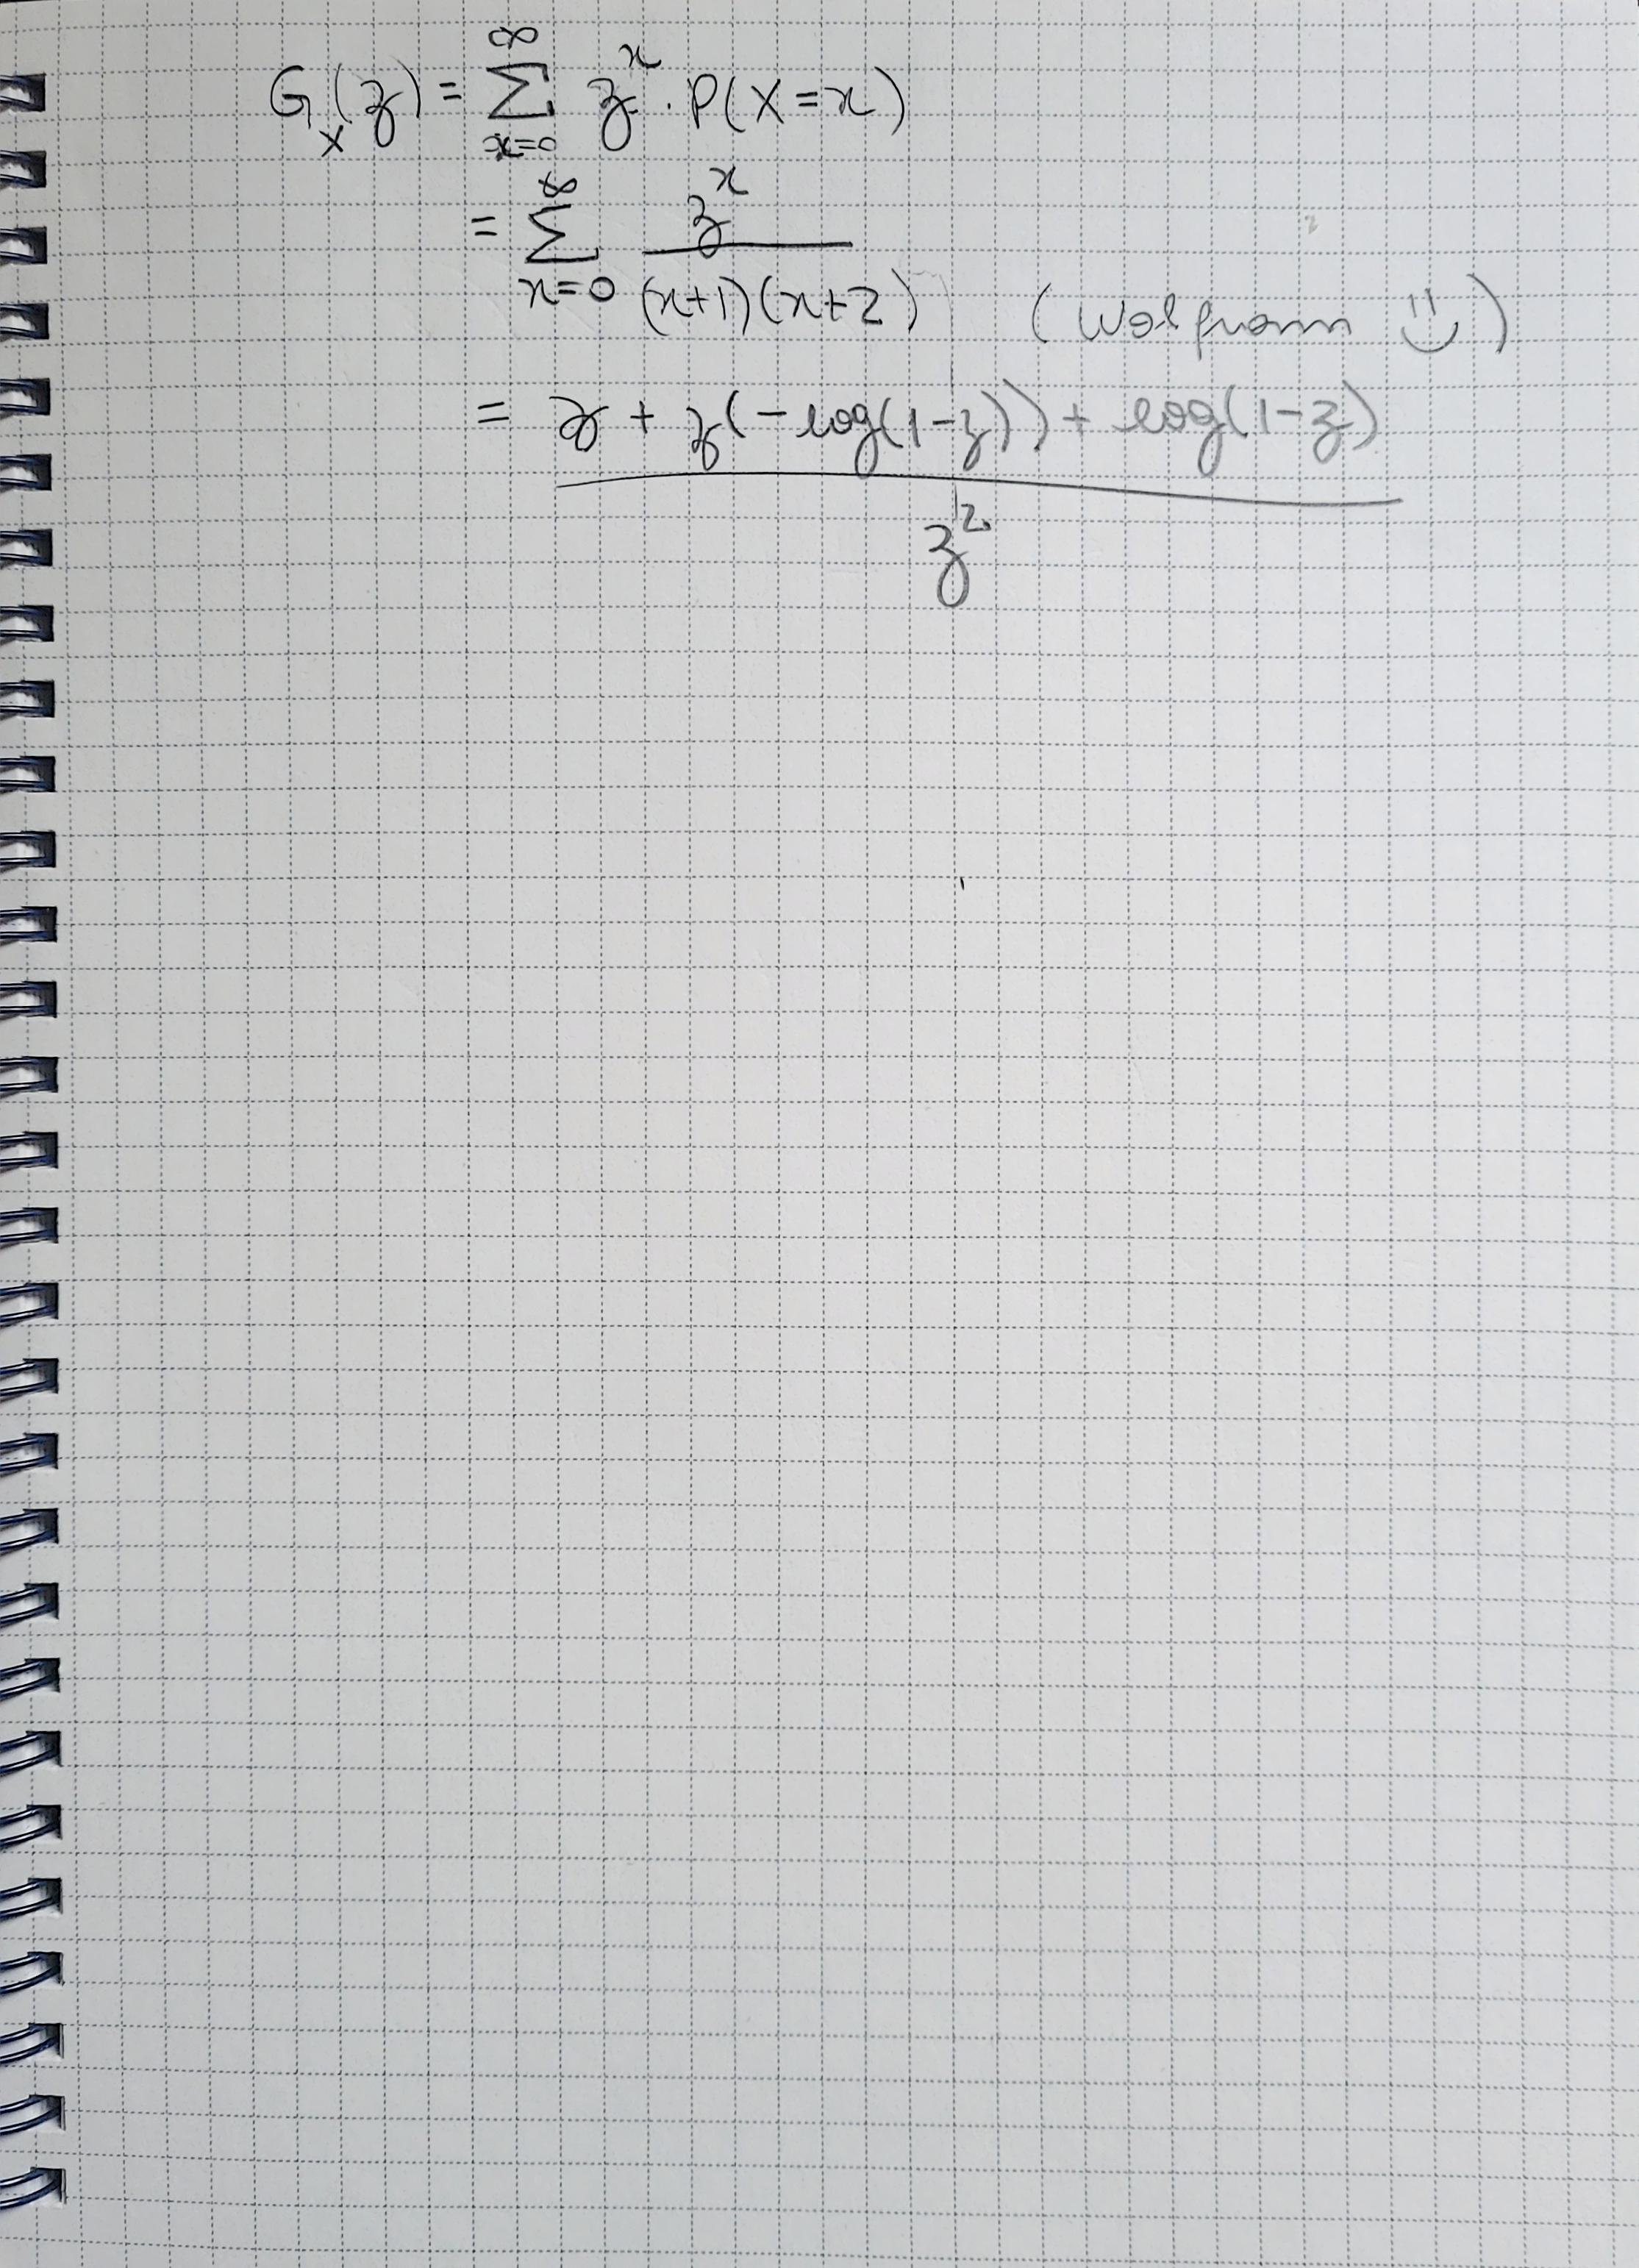 G_X(z) = ∑_{x=0}^{∞} z^x · P(X=x)
= ∑_{x=0}^{∞} z^x / (x+1)(x+2) (Wolfram :))
= z + z(-log(1-z)) + log(1-z) / z^2